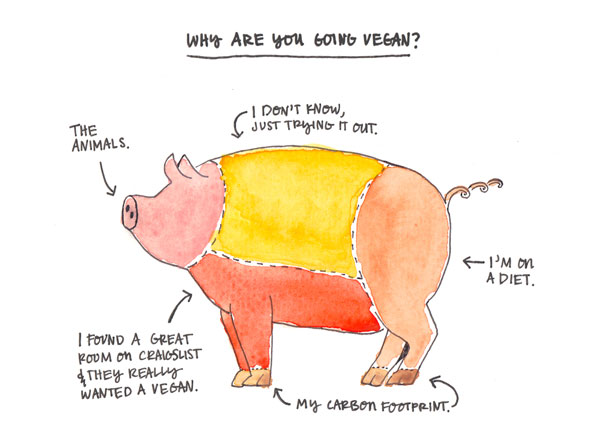 WHY ARE YOU GOING VEGAN?
THE
ANIMALS.
I DON'T KNOW,
JUST TRYING IT OUT.
I'M ON
A DIET.
I FOUND A GREAT
ROOM ON CRAIGSLIST
& THEY REALLY
WANTED A VEGAN.
MY CARBON FOOTPRINT.